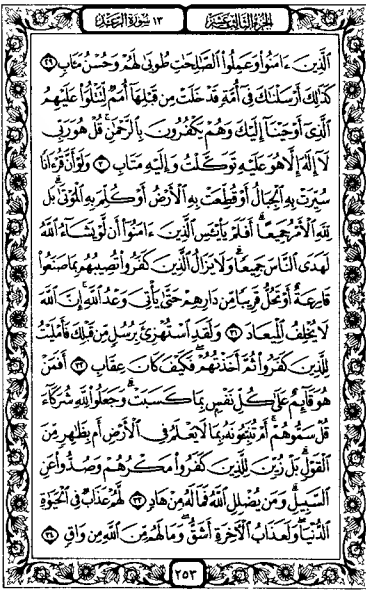 الجزء الثالث عشر ١٣ سورة الرعد
الَّذِينَ ءَامَنُوا۟ وَعَمِلُوا۟ الصَّٰلِحَٰتِ طُوبَىٰ لَهُمْ وَحُسْنُ مَـَٔابٍ ٢٩
كَذَٰلِكَ أَرْسَلْنَٰكَ فِىٓ أُمَّةٍ قَدْ خَلَتْ مِن قَبْلِهَآ أُمَمٌ لِّتَتْلُوَا۟ عَلَيْهِمُ
الَّذِىٓ أَوْحَيْنَآ إِلَيْكَ وَهُمْ يَكْفُرُونَ بِالرَّحْمَٰنِ ۚ قُلْ هُوَ رَبِّى
لَآ إِلَٰهَ إِلَّا هُوَ عَلَيْهِ تَوَكَّلْتُ وَإِلَيْهِ مَتَابِ ٣٠ وَلَوْ أَنَّ قُرْءَانًا
سُيِّرَتْ بِهِ الْجِبَالُ أَوْ قُطِّعَتْ بِهِ الْأَرْضُ أَوْ كُلِّمَ بِهِ الْمَوْتَىٰ ۗ بَل
لِّلَّهِ الْأَمْرُ جَمِيعًا ۗ أَفَلَمْ يَا۟يْـَٔسِ الَّذِينَ ءَامَنُوٓا۟ أَن لَّوْ يَشَآءُ اللَّهُ
لَهَدَى النَّاسَ جَمِيعًا ۗ وَلَا يَزَالُ الَّذِينَ كَفَرُوا۟ تُصِيبُهُم بِمَا صَنَعُوا۟
قَارِعَةٌ أَوْ تَحُلُّ قَرِيبًا مِّن دَارِهِمْ حَتَّىٰ يَأْتِىَ وَعْدُ اللَّهِ ۚ إِنَّ اللَّهَ
لَا يُخْلِفُ الْمِيعَادَ ٣١ وَلَقَدِ اسْتُهْزِئَ بِرُسُلٍ مِّن قَبْلِكَ فَأَمْلَيْتُ
لِلَّذِينَ كَفَرُوا۟ ثُمَّ أَخَذْتُهُمْ ۖ فَكَيْفَ كَانَ عِقَابِ ٣٢ أَفَمَنْ
هُوَ قَآئِمٌ عَلَىٰ كُلِّ نَفْسٍۭ بِمَا كَسَبَتْ ۗ وَجَعَلُوا۟ لِلَّهِ شُرَكَآءَ
قُلْ سَمُّوهُمْ ۚ أَمْ تُنَبِّـُٔونَهُۥ بِمَا لَا يَعْلَمُ فِى الْأَرْضِ أَم بِظَٰهِرٍ مِّنَ
الْقَوْلِ ۗ بَلْ زُيِّنَ لِلَّذِينَ كَفَرُوا۟ مَكْرُهُمْ وَصُدُّوا۟ عَنِ
السَّبِيلِ ۗ وَمَن يُضْلِلِ اللَّهُ فَمَا لَهُۥ مِنْ هَادٍ ٣٣ لَّهُمْ عَذَابٌ فِى الْحَيَوٰةِ
الدُّنْيَا ۖ وَلَعَذَابُ الْءَاخِرَةِ أَشَقُّ ۖ وَمَا لَهُم مِّنَ اللَّهِ مِن وَاقٍ ٣٤
٢٥٣